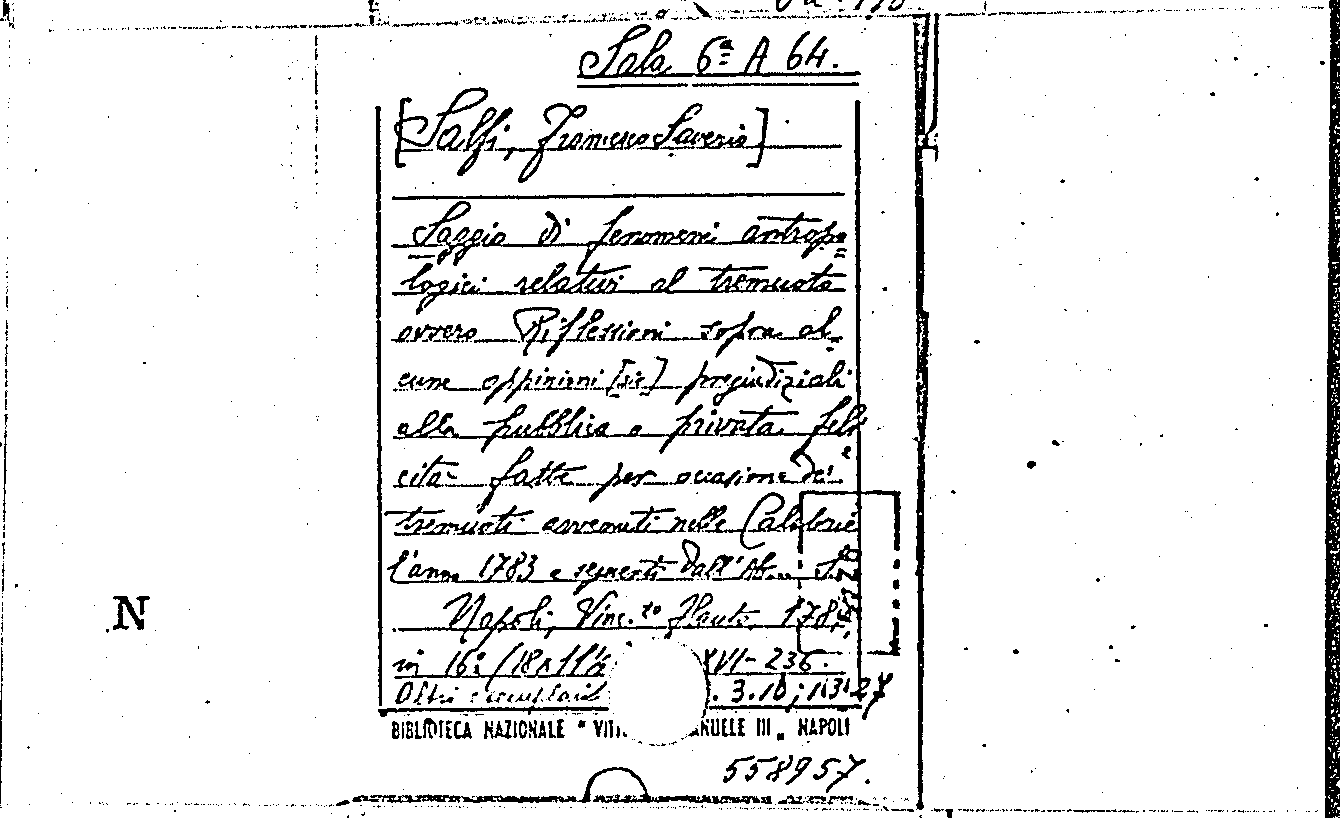 Sala 6ª A 64.
[Salfi, Francesco Saverio]
Saggio di fenomeni antropo=
logici relativi al tremuoto
ovvero Riflessioni sopra al=
cune oppinioni [sic] pregiudiziali
alla pubblica o privata feli
cità fatte per occasione de'
tremuoti avvenuti nelle Calabrie
l'anno 1783 e seguenti dall'Ab... S.
Napoli, Vinc.zo Flauto, 178
in 16º (18x11½ XVI-236.
Altri esemplari . 3.10;
BIBLIOTECA NAZIONALE " VITT ANUELE III „ NAPOLI
N
558957.